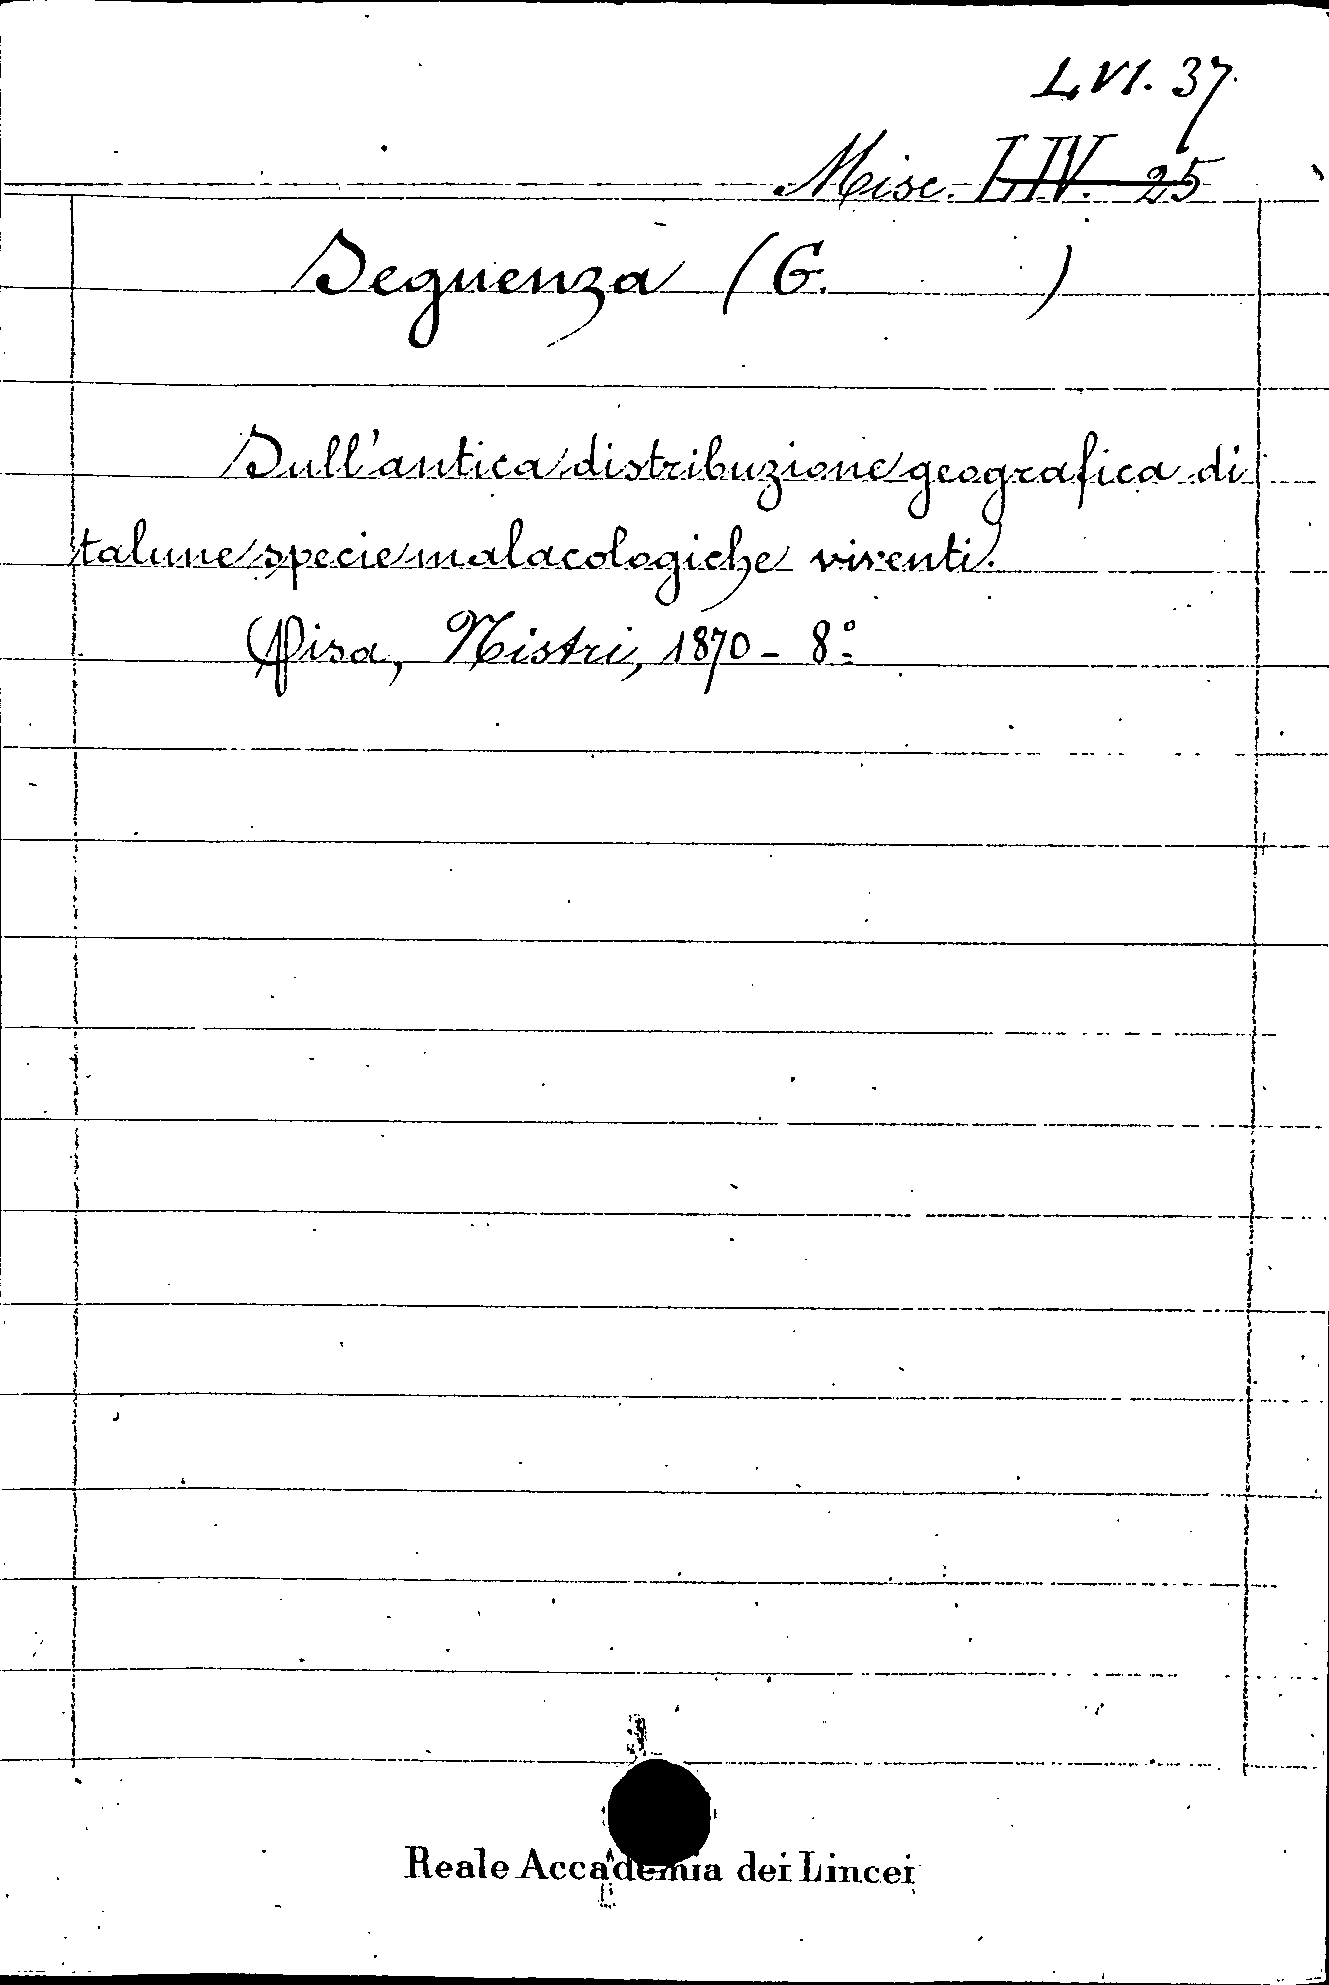 LVI. 37.
Misc. LIV. 25
Seguenza (G. )
Sull'antica distribuzione geografica di
talune specie malacologiche viventi.
Pisa, Nistri, 1870 - 8.°
Reale Accademia dei Lincei